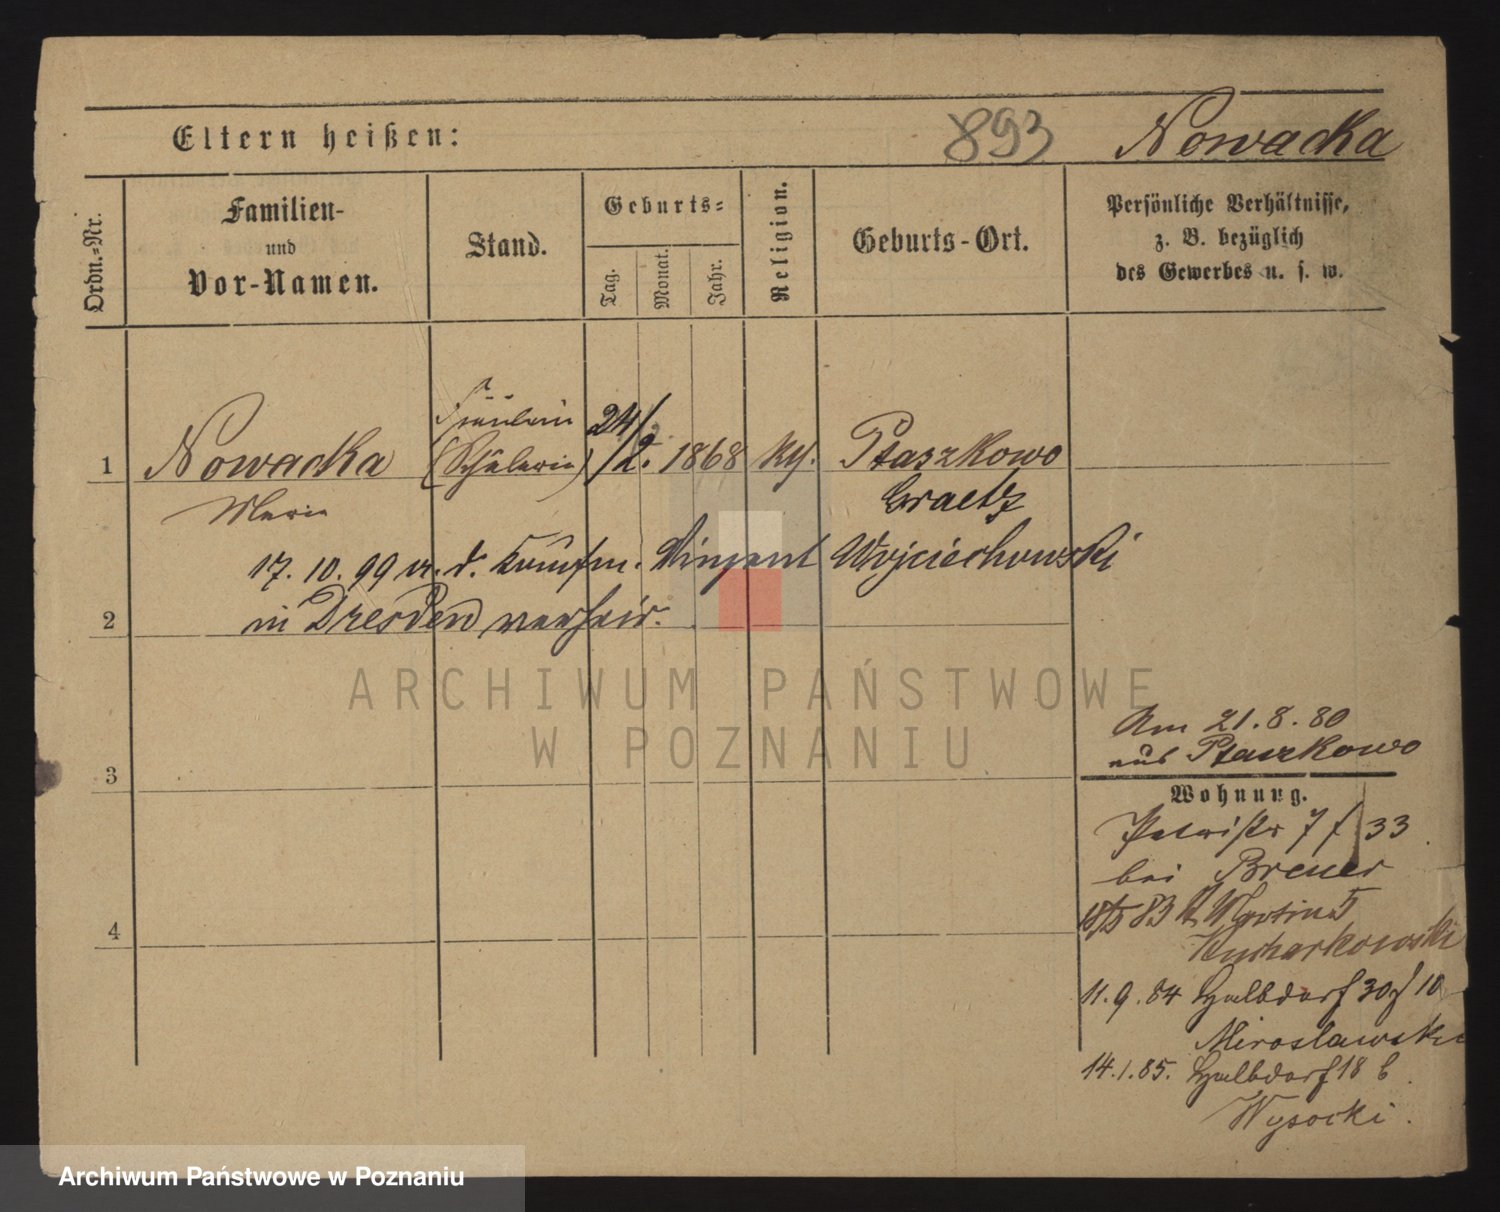 Eltern heißen:
893
Nowacka
Ordn.-Nr.
Familien-
und
Vor-Namen.
Stand.
Geburts-
Tag.
Monat.
Jahr.
Religion.
Geburts-Ort.
Persönliche Verhältnisse,
z. B. bezüglich
des Gewerbes u. s. w.
Fräulein
1 Nowacka (Schülerin) 24/2. 1868 Ptaszkowo
Maria Graetz
17. 10. 99 m. d. Kaufm. Vinzent Wojciechowski
2 in Dresden verheir.
ARCHIWUM PAŃSTWOWE
W POZNANIU
Am 21.8.80
aus Ptaszkowo
3
Wohnung.
7 / 33
bei Breuer
83 St Martin 5
4
Kucharkowski
11.9.84 Halbdorf 30 f 10
Miroslawska
14.1.85. Halbdorf 18 b
Wysocki.
Archiwum Państwowe w Poznaniu